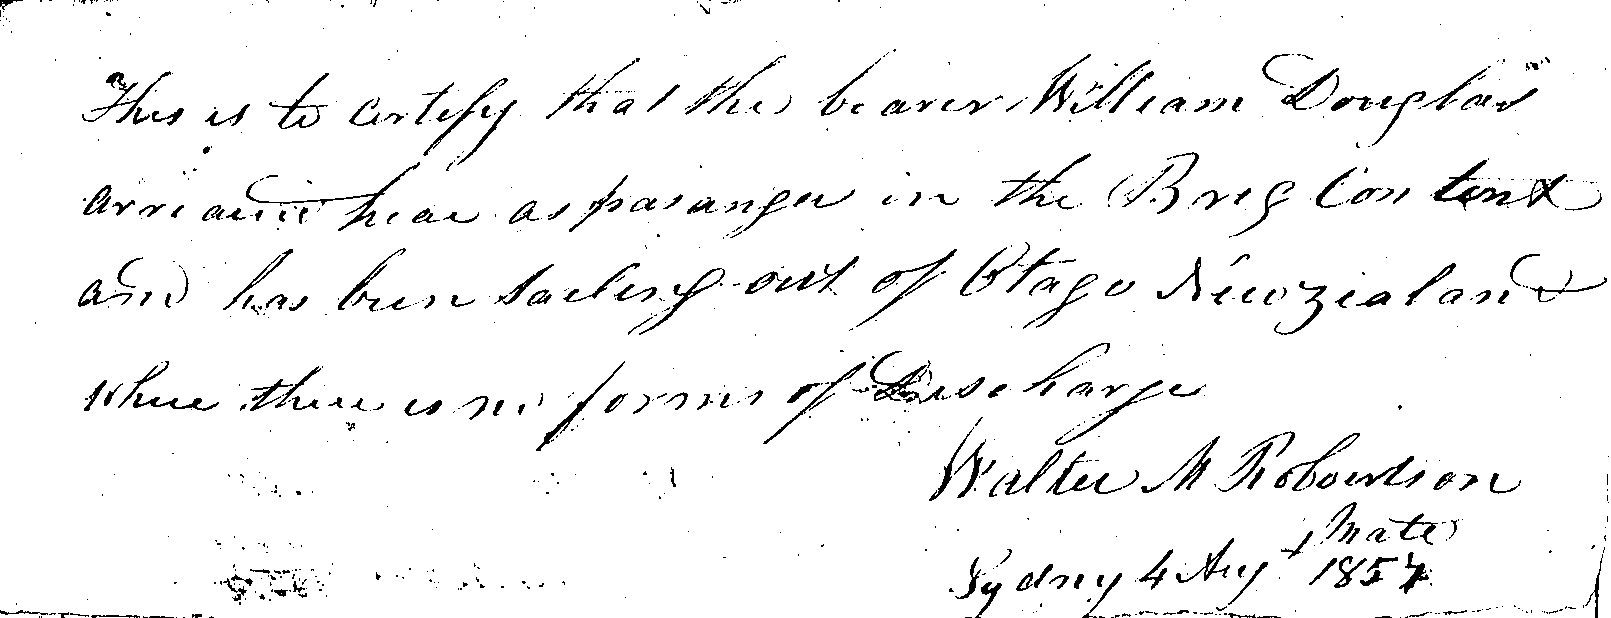 This is to certify that the bearer William Douglas
arrived hear as pasanger in the Brig Content
and has been sailing out of Otago Newzialand
where there is no forms of Discharge
Walter M Robertson
Mate
Sydny 4 Augt 1857